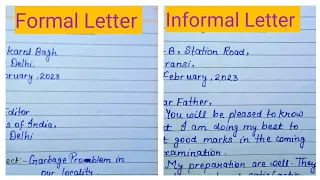 Formal Letter
karni Bagh
Delhi.
ebruary, 2023
Editor
s of India,
Delhi
ect:- Garbage Problem in
our locality.
Informal Letter
-B, Station Road,
ransi.
February, 2023
ar Father,
You will be pleased to know
t I am doing my best to
t good marks in the coming
xamination.
My preparation are well. They